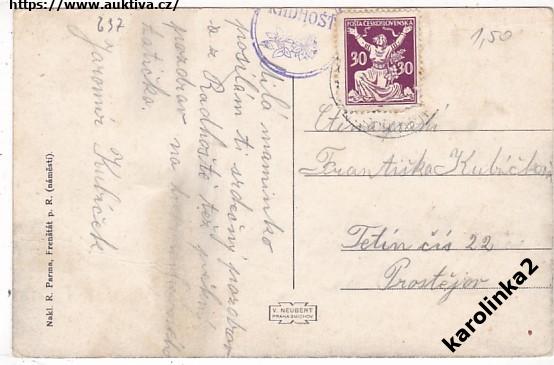 https://www.auktiva.cz/
637
RADHOŠŤ
POŠTA ČESKOSLOVENSKÁ
30 30
1,50
Milá maminko
posílám ti srdečný pozdrav
a z Radhoště též pěkný
pozdrav na
tatíčka.
Jaromír Kubíček
Ctihodná paní
Františka Kubíčkova
Tetín čís 22
Prostějov
Nakl. R. Parma, Frenštát p. R. (náměstí).
V. NEUBERT
PRAHA-SMÍCHOV
karolinka2